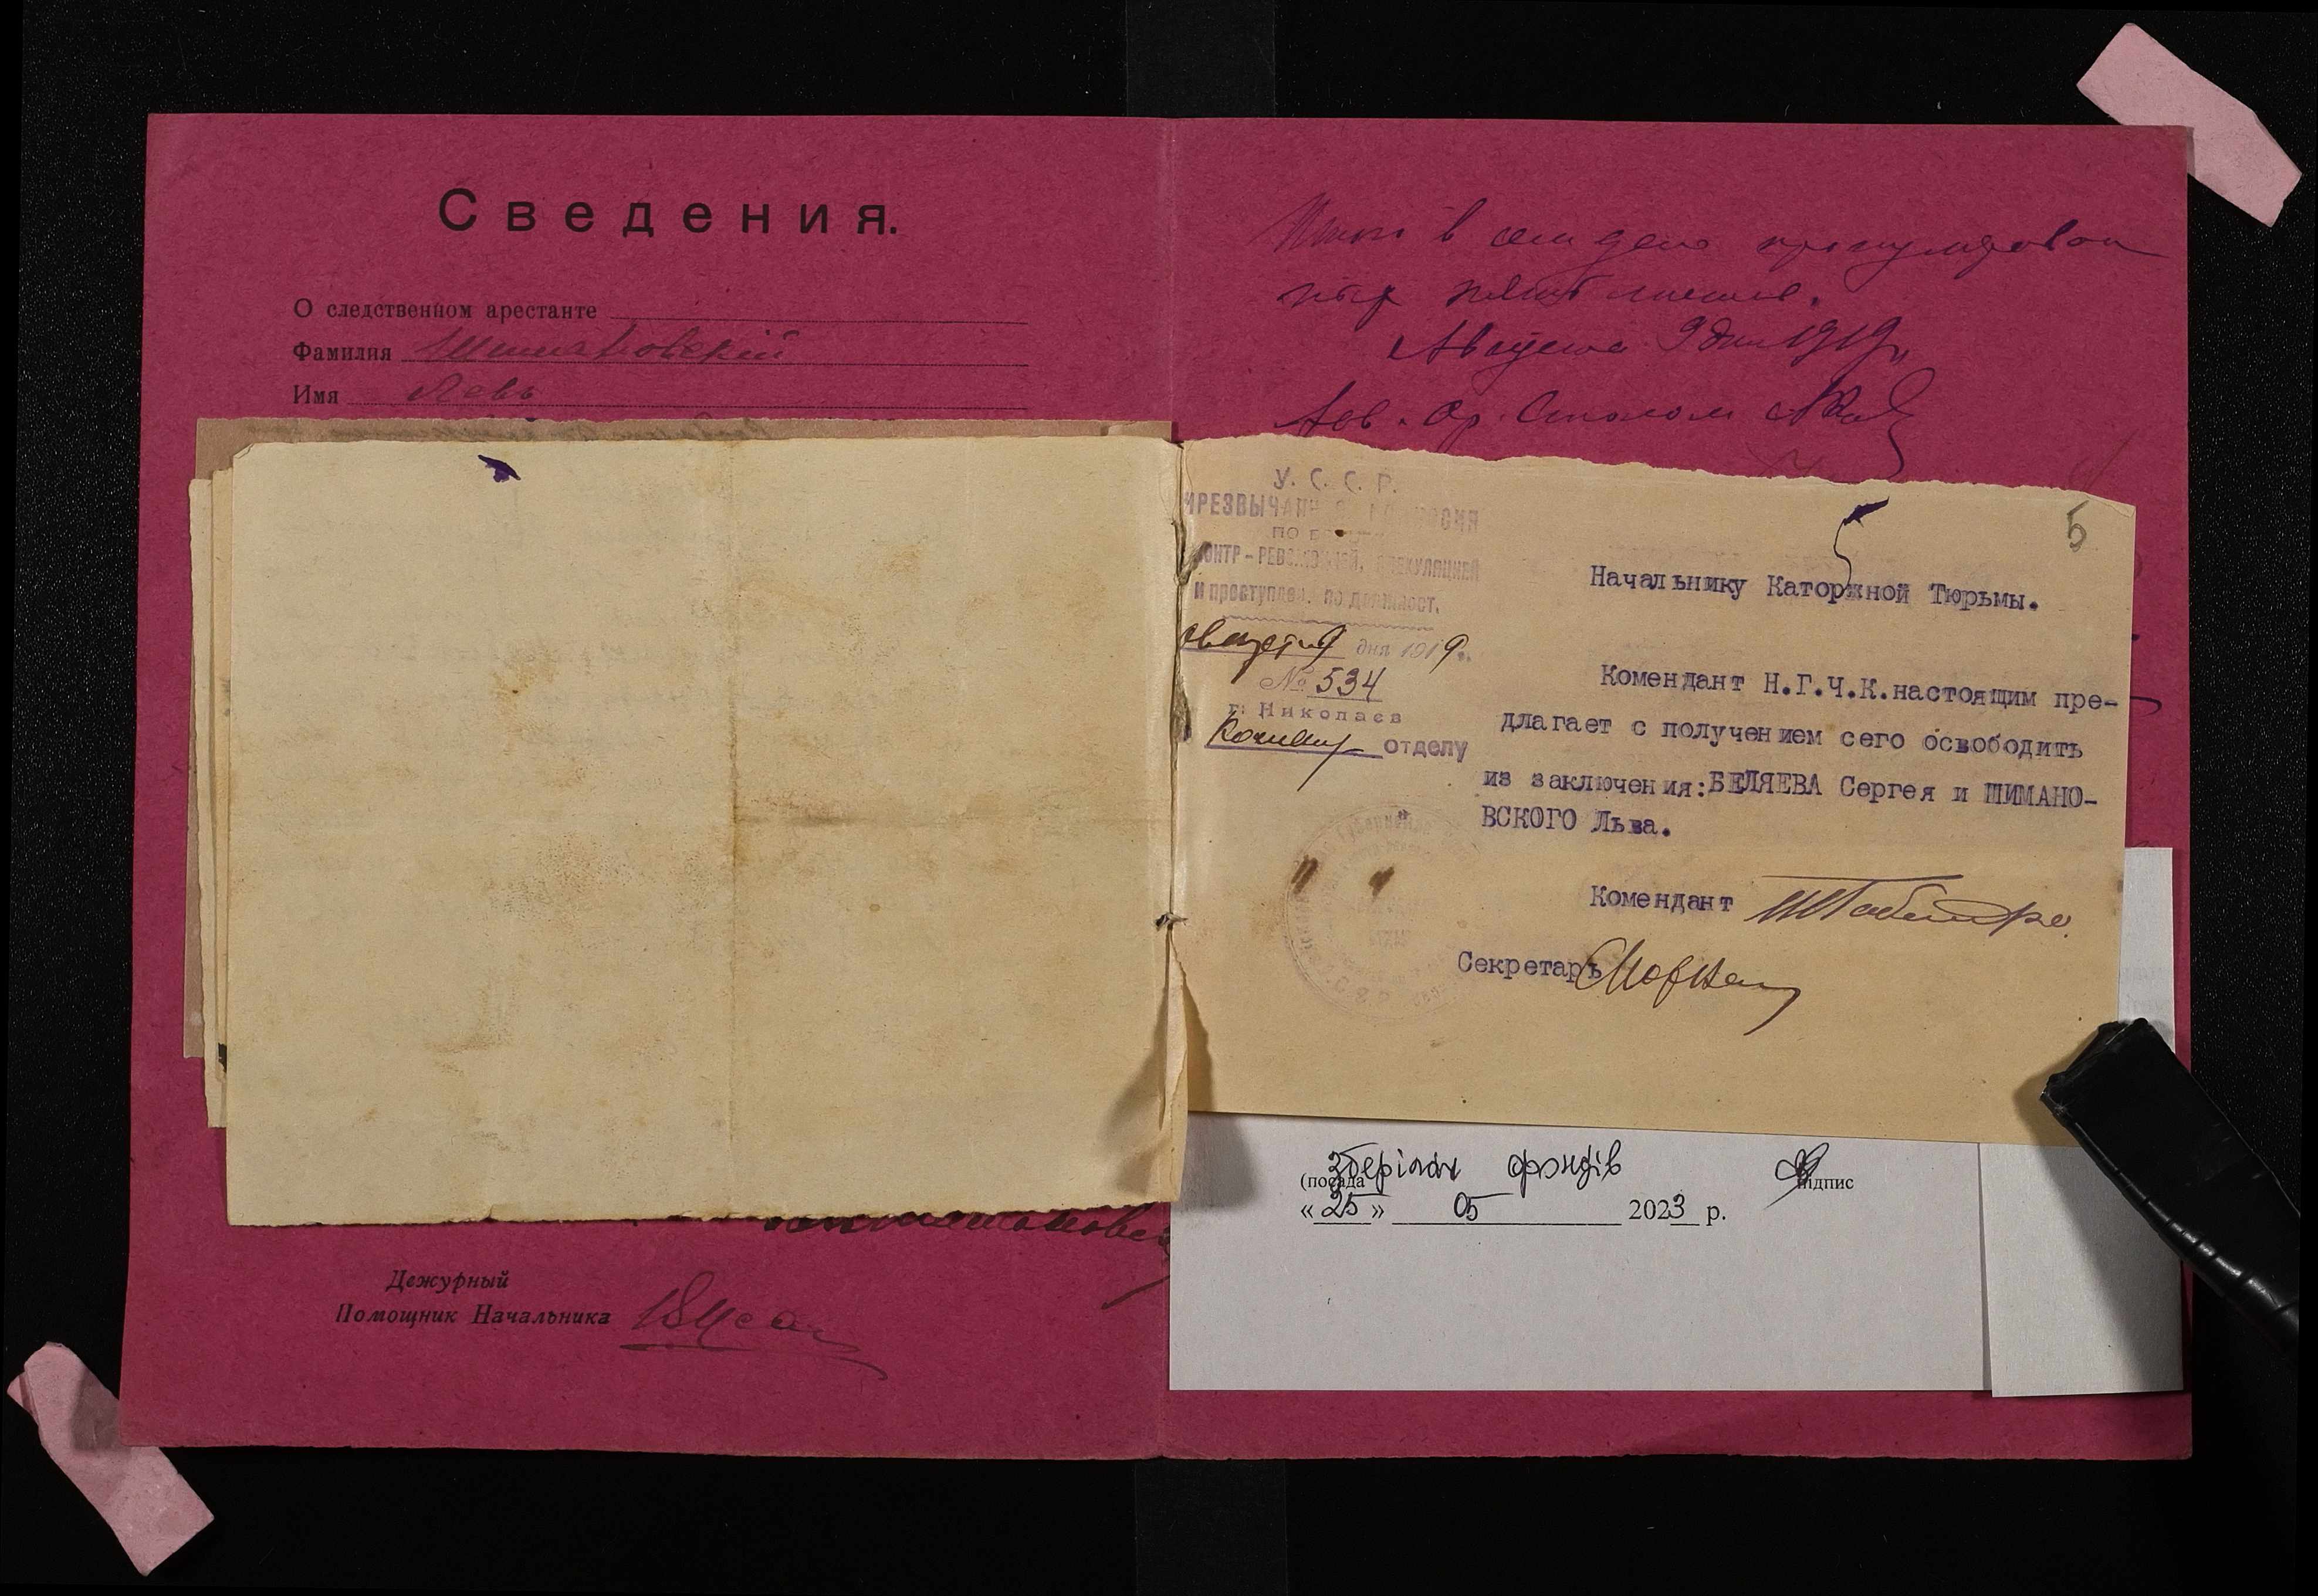 Сведения.
О следственном арестанте
Фамилия Шимановскій
Имя Левъ
Дежурный
Помощник Начальника
Итого в сем деле пронумерован
пять листов.
Августа 9 дня 1919 г.
У. С. С. Р.
ЧРЕЗВЫЧАЙН КОМИССИЯ
ПО
КОНТР-РЕВОЛЮЦИЕЙ, СПЕКУЛЯЦИЕЙ
и преступлен. по должност.
августа 9 дня 1919 г.
№ 534
г. Николаев
отделу
5
Начальнику Каторжной Тюрьмы.
Комендант Н.Г.Ч.К.настоящим пре-
длагает с получением сего освободить
из заключения:БЕЛЯЕВА Сергея и ШИМАНО-
ВСКОГО Льва.
Комендант
Секретарь
зберігач фондів
(посада підпис
« 25 » 05 2023 р.